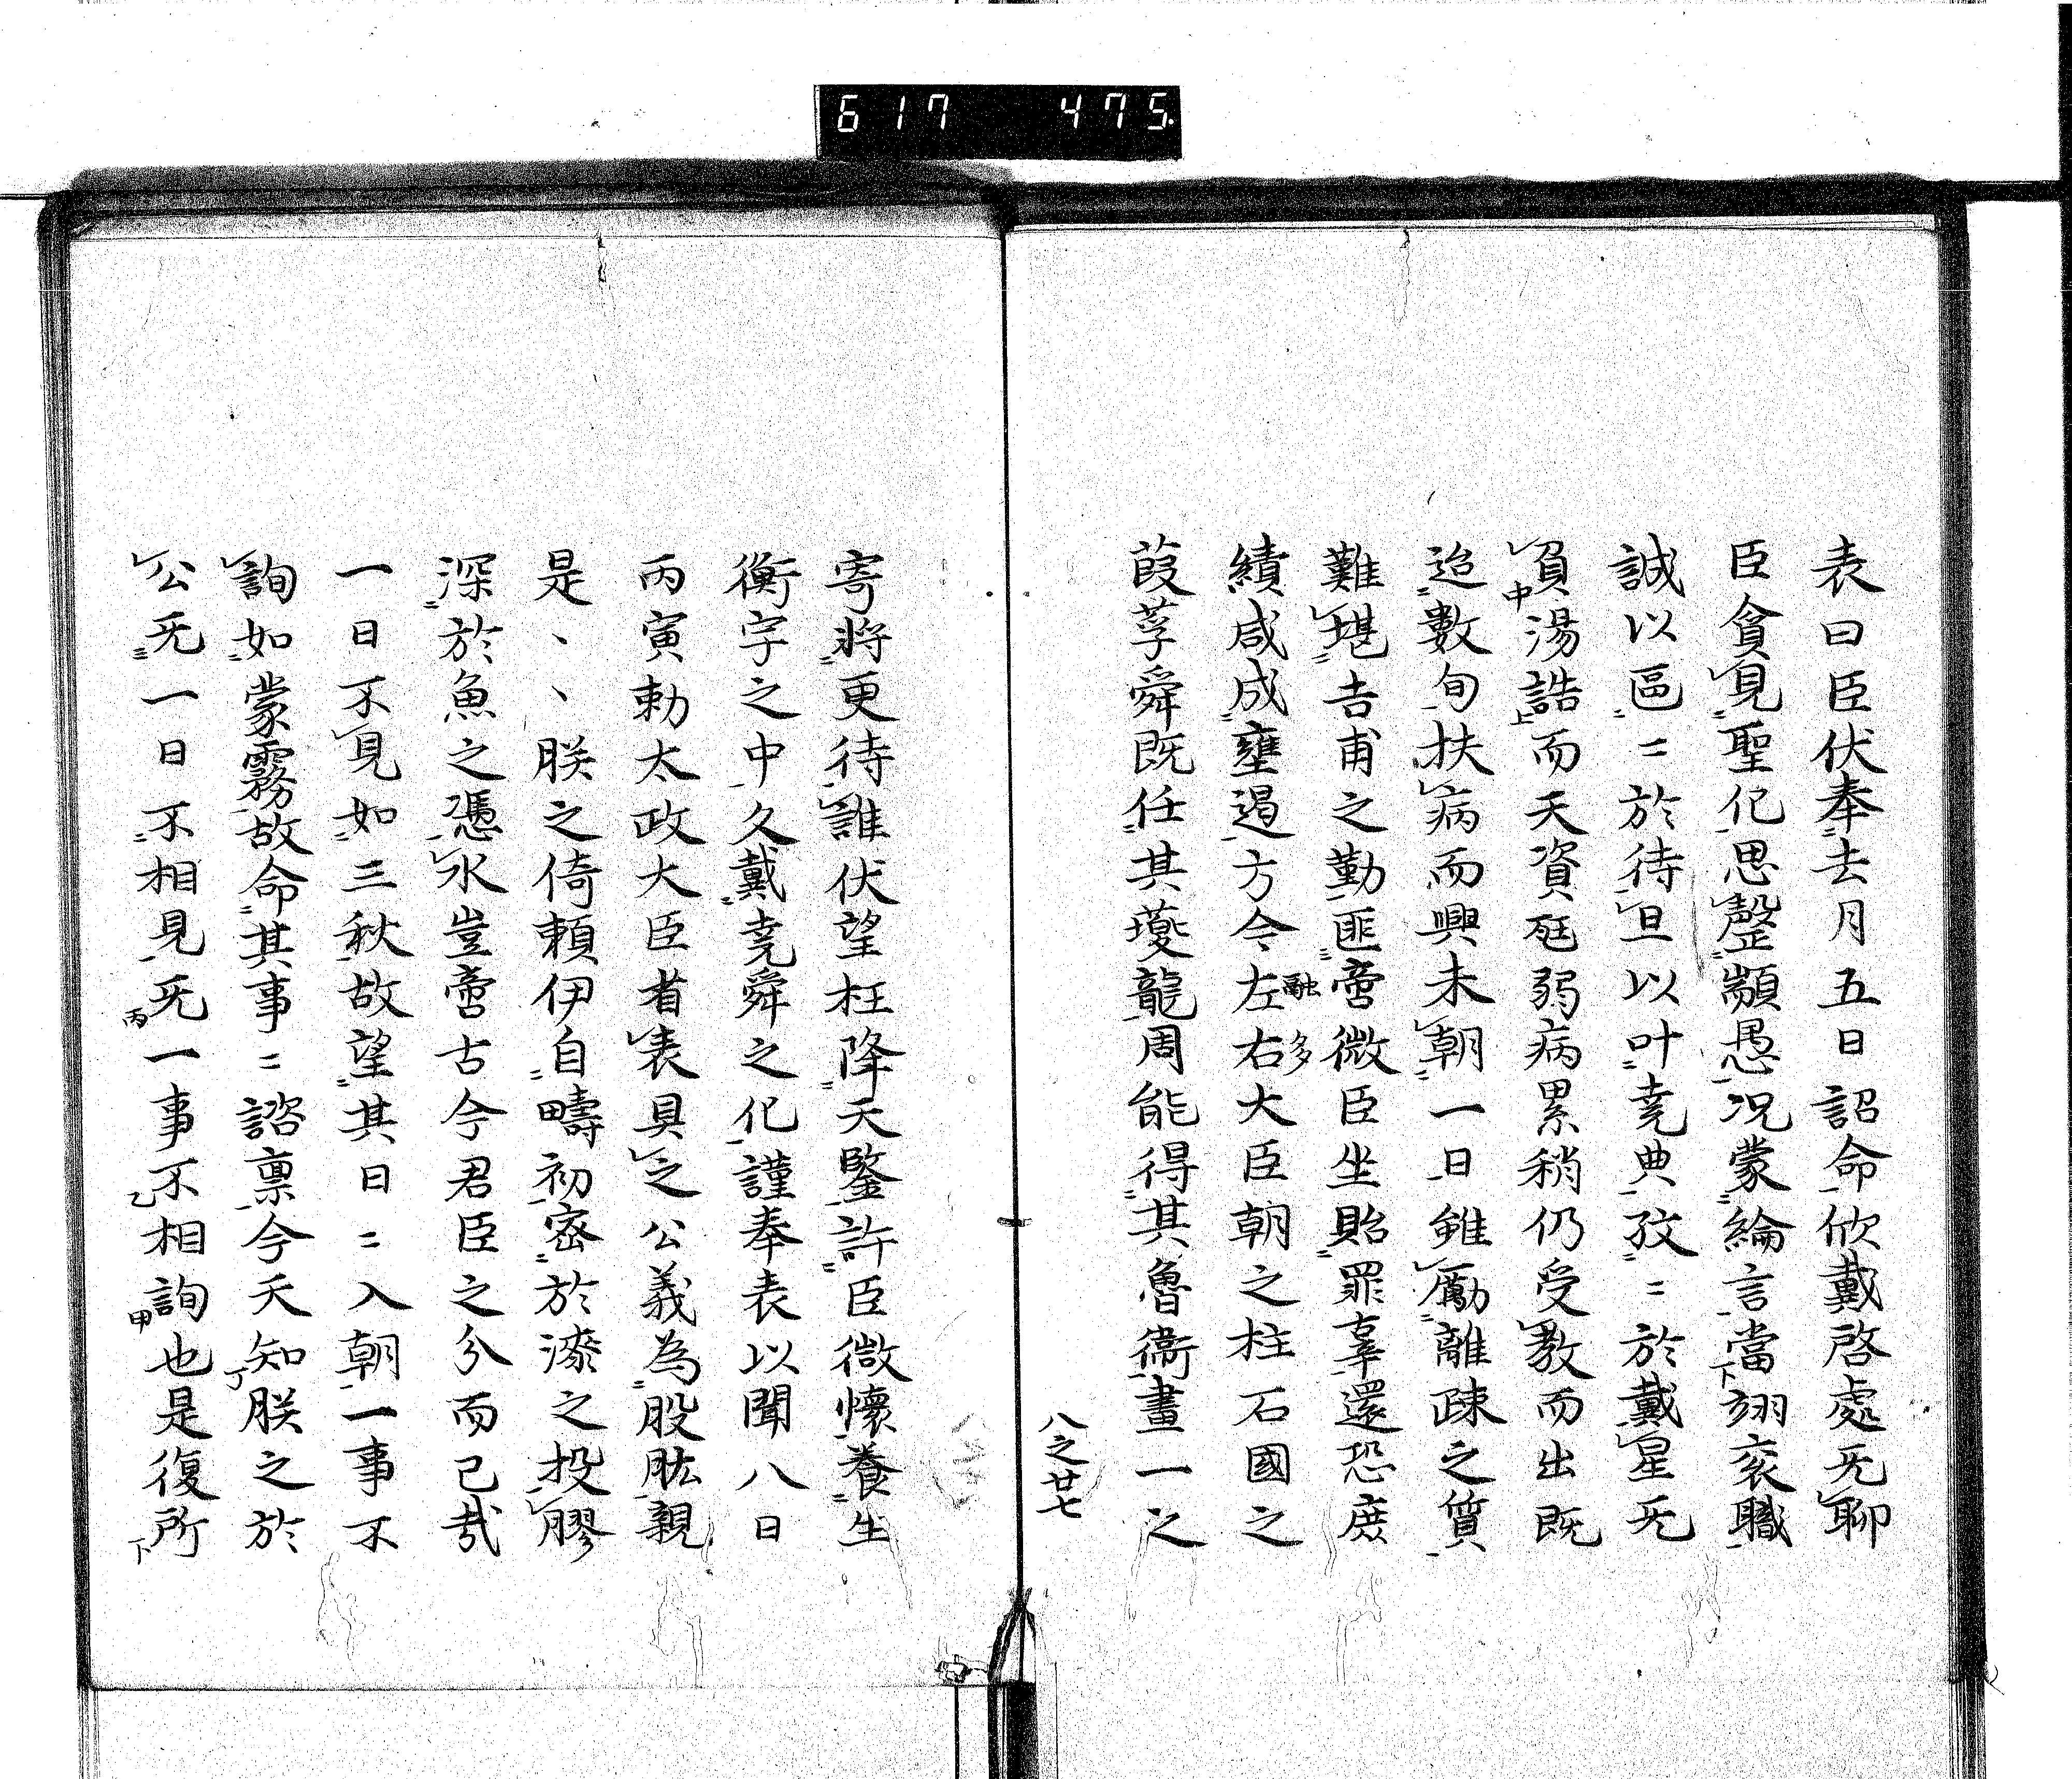 617 475.
表曰臣伏奉去月五日詔命欣戴啓處旡聊
臣貪見聖化思罄顓愚况蒙綸言當翊衮職
誠以區〻於待旦以叶堯典孜〻於戴星旡
負湯誥而天資尫弱病累稍仍受教而出既
迨數旬扶病而興未朝一日雖勵離疎之質
難堪吉甫之勤匪啻微臣坐貽罪辜還恐庶
績咸成壅遏方今左融右多大臣朝之柱石國之
葭莩舜既任其夔龍周能得其魯衛畫一之
八之廿七
寄將更待誰伏望枉降天鑒許臣微懷養生
衡宇之中久戴堯舜之化謹奉表以聞八日
丙寅勅太政大臣省表具之公義為股肱親
是、、朕之倚頼伊自疇初密於漆之投膠
深於魚之憑水豈啻古今君臣之分而已哉
一日不見如三秋故望其日〻入朝一事不
詢如蒙霧故命其事〻諮禀今天知朕之於
公旡一日不相見旡一事不相詢也是復所